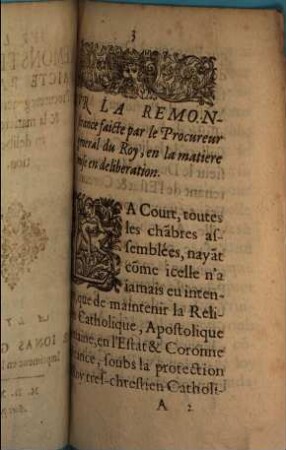 3
VR LA REMON-
trance faicte par le Procureur
general du Roy, en la matiere
mise en deliberation.
LA Court, toutes
les chãbres as-
semblées, nayãt
cõme icelle n'a
iamais eu inten-
que de maintenir la Reli-
Catholique, Apostolique
maine, en l'Estat & Coronne
rance, soubs la protection
Roy tres-chrestien Catholi-
A 2
IONAS G